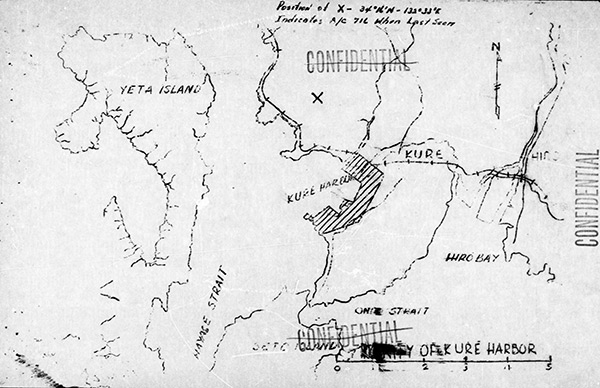 Position of X - 34°16'N - 132°33'E
Indicates A/c 716 When Last Seen
CONFIDENTIAL
N
YETA ISLAND
X
KURE
HIRO
KURE HARBOR
CONFIDENTIAL
HIRO BAY
HAYASE STRAIT
ONDE STRAIT
CONFIDENTIAL
ISLAND
OF KURE HARBOR
0 1 2 3 4 5